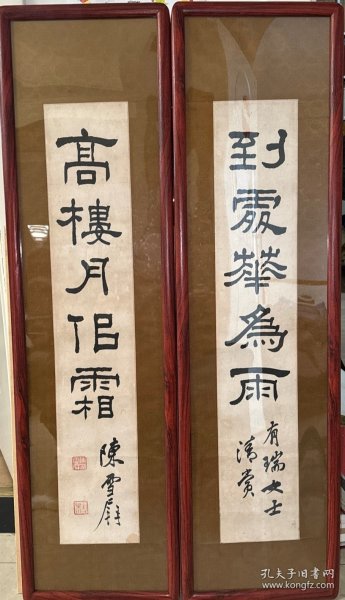 到處華為雨
有瑞女士
清賞
高樓月佀霜
陳雪屏
孔夫子旧书网
www.kongfz.com